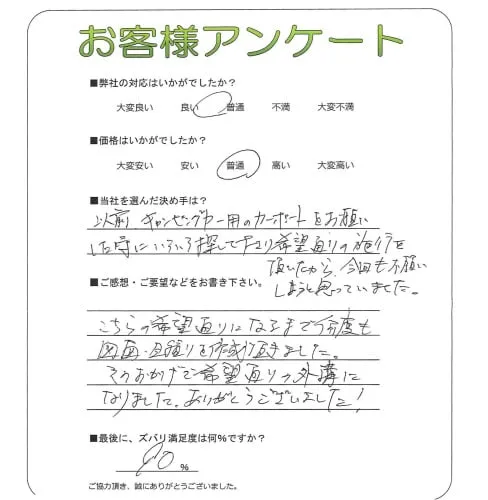 お客様アンケート
■弊社の対応はいかがでしたか？
大変良い 良い 普通 不満 大変不満
■価格はいかがでしたか？
大変安い 安い 普通 高い 大変高い
■当社を選んだ決め手は？
以前、キャンピングカー用のカーポートをお願い
した時にいろいろ探して下さり希望通りの施行を
頂いたから、今回もお願い
しようと思っていました。
■ご感想・ご要望などをお書き下さい。
こちらの希望通りになるまで何度も
図面・見積りを作成頂きました。
そのおかげで希望通りの外溝に
なりました。ありがとうございました！
■最後に、ズバリ満足度は何％ですか？
90 ％
ご協力頂き、誠にありがとうございました。